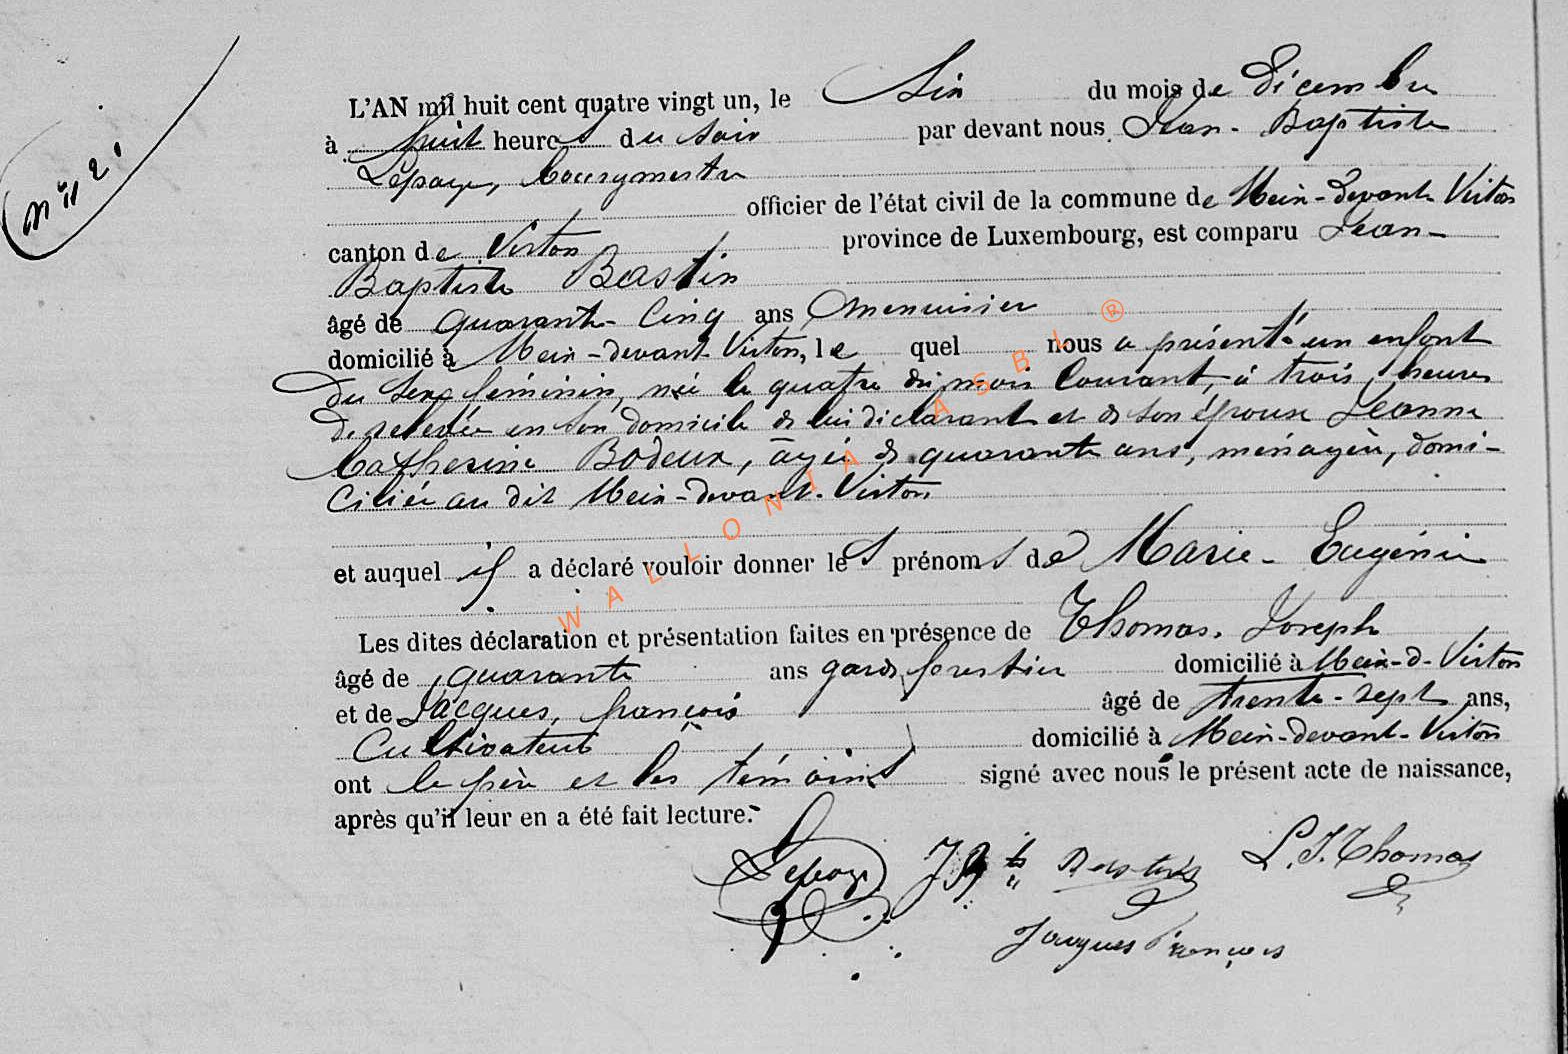 N° 21
L'AN mil huit cent quatre vingt un, le Six du mois de Décembre
à huit heures du soir par devant nous Jean-Baptiste
Lepage, bourgmestre
officier de l'état civil de la commune de Meix-devant-Virton
canton de Virton province de Luxembourg, est comparu Jean-
Baptiste Bastin
âgé de quarante-cinq ans menuisier
domicilié à Meix-devant-Virton, le quel nous a présenté un enfant
du sexe féminin, née le quatre du mois courant, à trois heures
de relevée en son domicile de lui déclarant et de son épouse Jeanne
Catherine Bodeux, âgée de quarante ans, ménagère, domi-
ciliée au dit Meix-devant-Virton
et auquel il a déclaré vouloir donner les prénoms de Marie-Eugénie
Les dites déclaration et présentation faites en présence de Thomas, Joseph
âgé de quarante ans garde forestier domicilié à Meix-d-Virton
et de Jacques, françois âgé de trente-sept ans,
Cultivateur domicilié à Meix-devant-Virton
ont le père et les témoins signé avec nous le présent acte de naissance,
après qu'il leur en a été fait lecture.
Lepage J Bte Bastin L. J. Thomas
Jacques François
WALLONIA ASBL ®